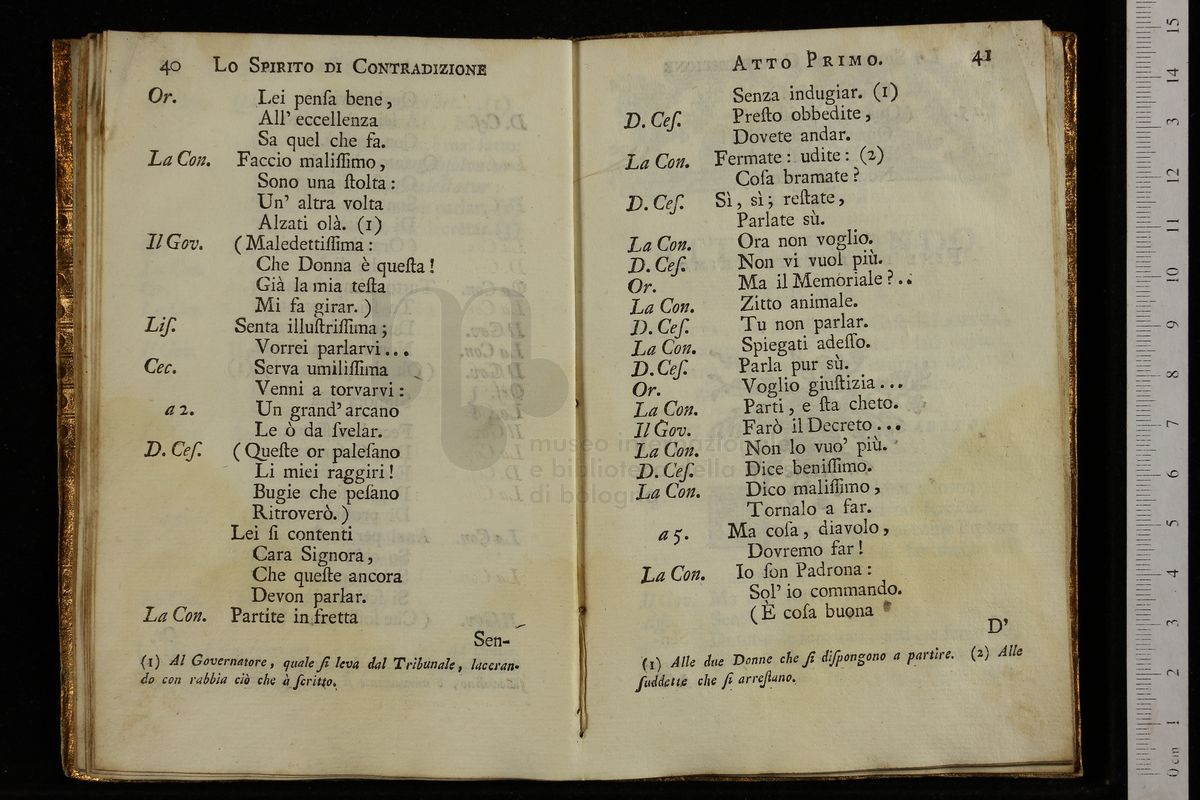 40 Lo Spirito di Contradizione
Or. Lei penſa bene,
All' eccellenza
Sa quel che fa.
La Con. Faccio maliſſimo,
Sono una ſtolta:
Un' altra volta
Alzati olà. (1)
Il Gov. (Maledettiſſima:
Che Donna è queſta!
Già la mia teſta
Mi fa girar.)
Liſ. Senta illuſtriſſima;
Vorrei parlarvi...
Cec. Serva umiliſſima
Venni a torvarvi:
a 2. Un grand' arcano
Le ò da ſvelar.
D. Ceſ. (Queſte or paleſano
Li miei raggiri!
Bugie che peſano
Ritroverò.)
Lei ſi contenti
Cara Signora,
Che queſte ancora
Devon parlar.
La Con. Partite in fretta
Sen-
(1) Al Governatore, quale ſi leva dal Tribunale, laceran-
do con rabbia ciò che à ſcritto.
Atto Primo. 41
Senza indugiar. (1)
D. Ceſ. Preſto obbedite,
Dovete andar.
La Con. Fermate: udite: (2)
Coſa bramate?
D. Ceſ. Sì, sì; reſtate,
Parlate sù.
La Con. Ora non voglio.
D. Ceſ. Non vi vuol più.
Or. Ma il Memoriale?..
La Con. Zitto animale.
D. Ceſ. Tu non parlar.
La Con. Spiegati adeſſo.
D. Ceſ. Parla pur sù.
Or. Voglio giuſtizia...
La Con. Parti, e ſta cheto.
Il Gov. Farò il Decreto...
La Con. Non lo vuo' più.
D. Ceſ. Dice beniſſimo.
La Con. Dico maliſſimo,
Tornalo a far.
a 5. Ma coſa, diavolo,
Dovremo far!
La Con. Io ſon Padrona:
Sol' io commando.
(È coſa buona
D'
(1) Alle due Donne che ſi diſpongono a partire. (2) Alle
ſuddette che ſi arreſtano.
museo internazionale
e biblioteca della
di bologna
0 cm 1 2 3 4 5 6 7 8 9 10 11 12 3 14 15